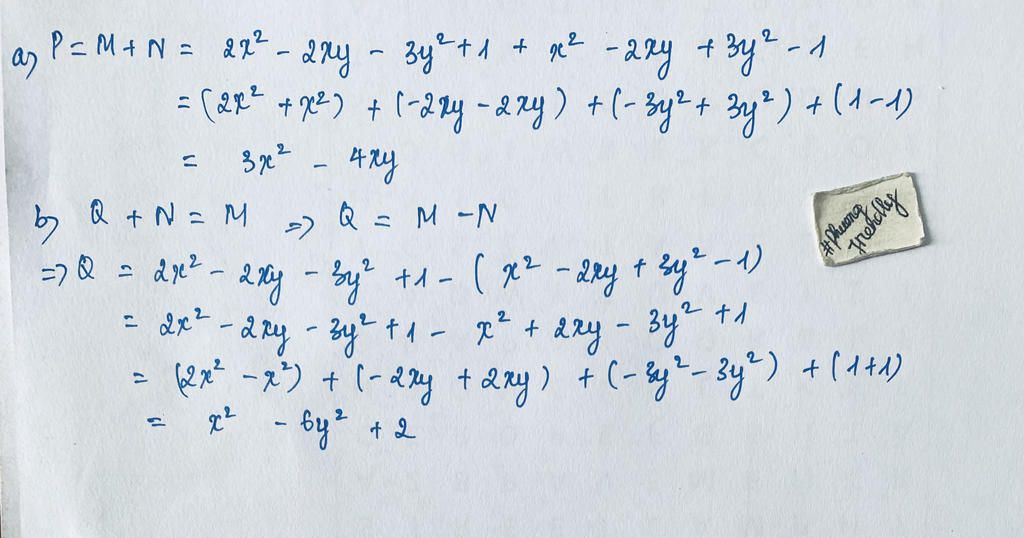 a) P = M + N = 2x² - 2xy - 3y² + 1 + x² - 2xy + 3y² - 1
= (2x² + x²) + (-2xy - 2xy) + (-3y² + 3y²) + (1 - 1)
= 3x² - 4xy
b) Q + N = M => Q = M - N
=> Q = 2x² - 2xy - 3y² + 1 - (x² - 2xy + 3y² - 1)
= 2x² - 2xy - 3y² + 1 - x² + 2xy - 3y² + 1
= (2x² - x²) + (-2xy + 2xy) + (-3y² - 3y²) + (1+1)
= x² - 6y² + 2